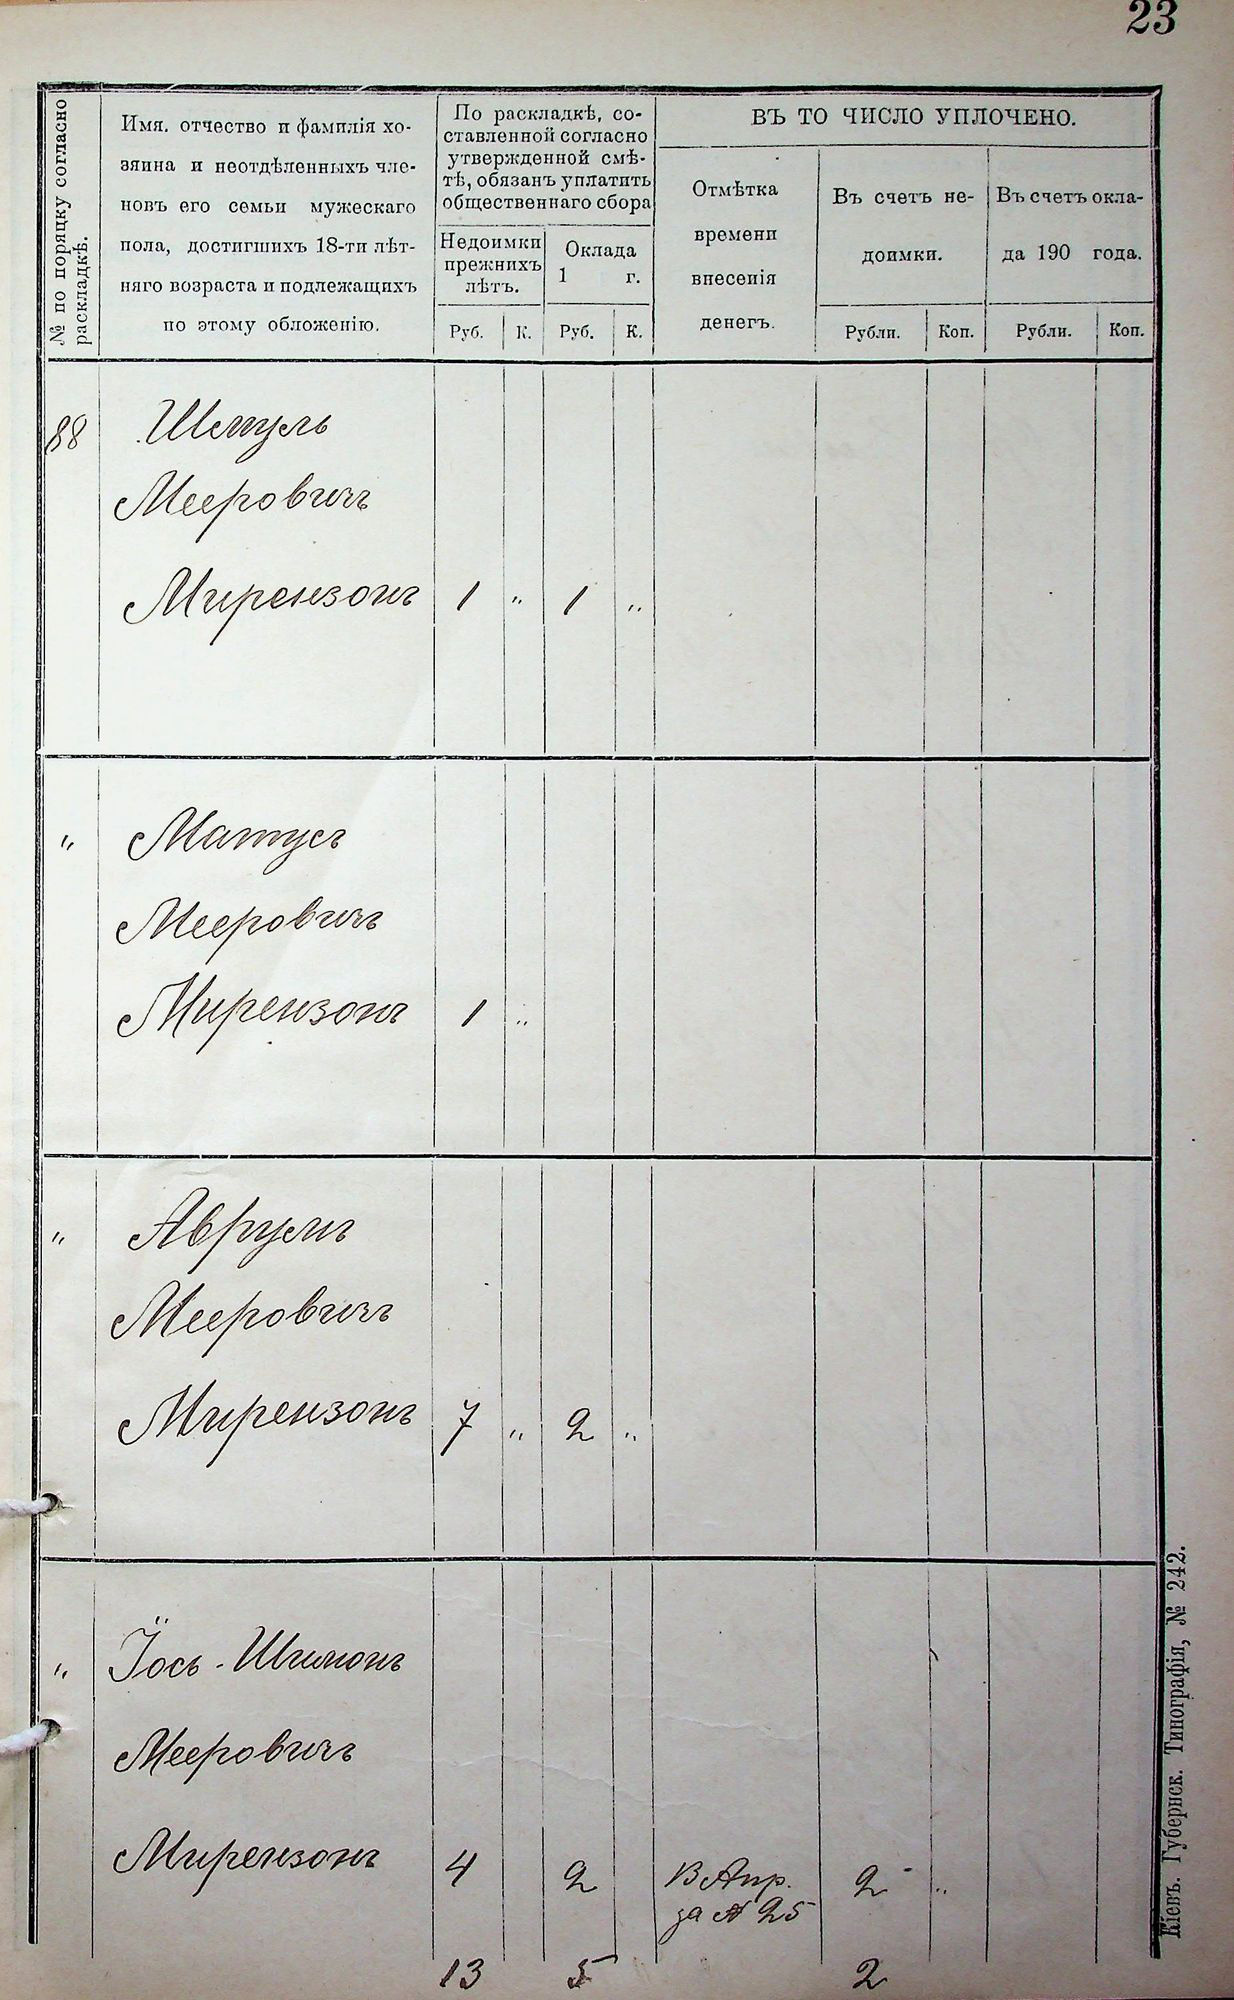 23
№ по порядку согласно
раскладкѣ.
Имя, отчество и фамилія хо-
зяина и неотдѣленныхъ чле-
новъ его семьи мужескаго
пола, достигшихъ 18-ти лѣт-
няго возраста и подлежащихъ
по этому обложенію.
По раскладкѣ, со-
ставленной согласно
утвержденной смѣ-
тѣ, обязанъ уплатить
общественнаго сбора
Недоимки
прежнихъ
лѣтъ.
Оклада
1 г.
Руб. К. Руб. К.
ВЪ ТО ЧИСЛО УПЛОЧЕНО.
Отмѣтка
времени
внесенія
денегъ.
Въ счетъ не-
доимки.
Въ счетъ окла-
да 190 года.
Рубли. Коп. Рубли. Коп.
88 Шмуль
Мееровичъ
Мирензонъ 1 " 1 "
" Матусъ
Мееровичъ
Мирензонъ 1 "
" Аврумъ
Мееровичъ
Мирензонъ 7 " 2 "
" Іось-Шимонъ
Мееровичъ
Мирензонъ 4 2 В Апр. 2 "
за № 25
13 5 2
Кіевъ. Губернск. Типографія, № 242.